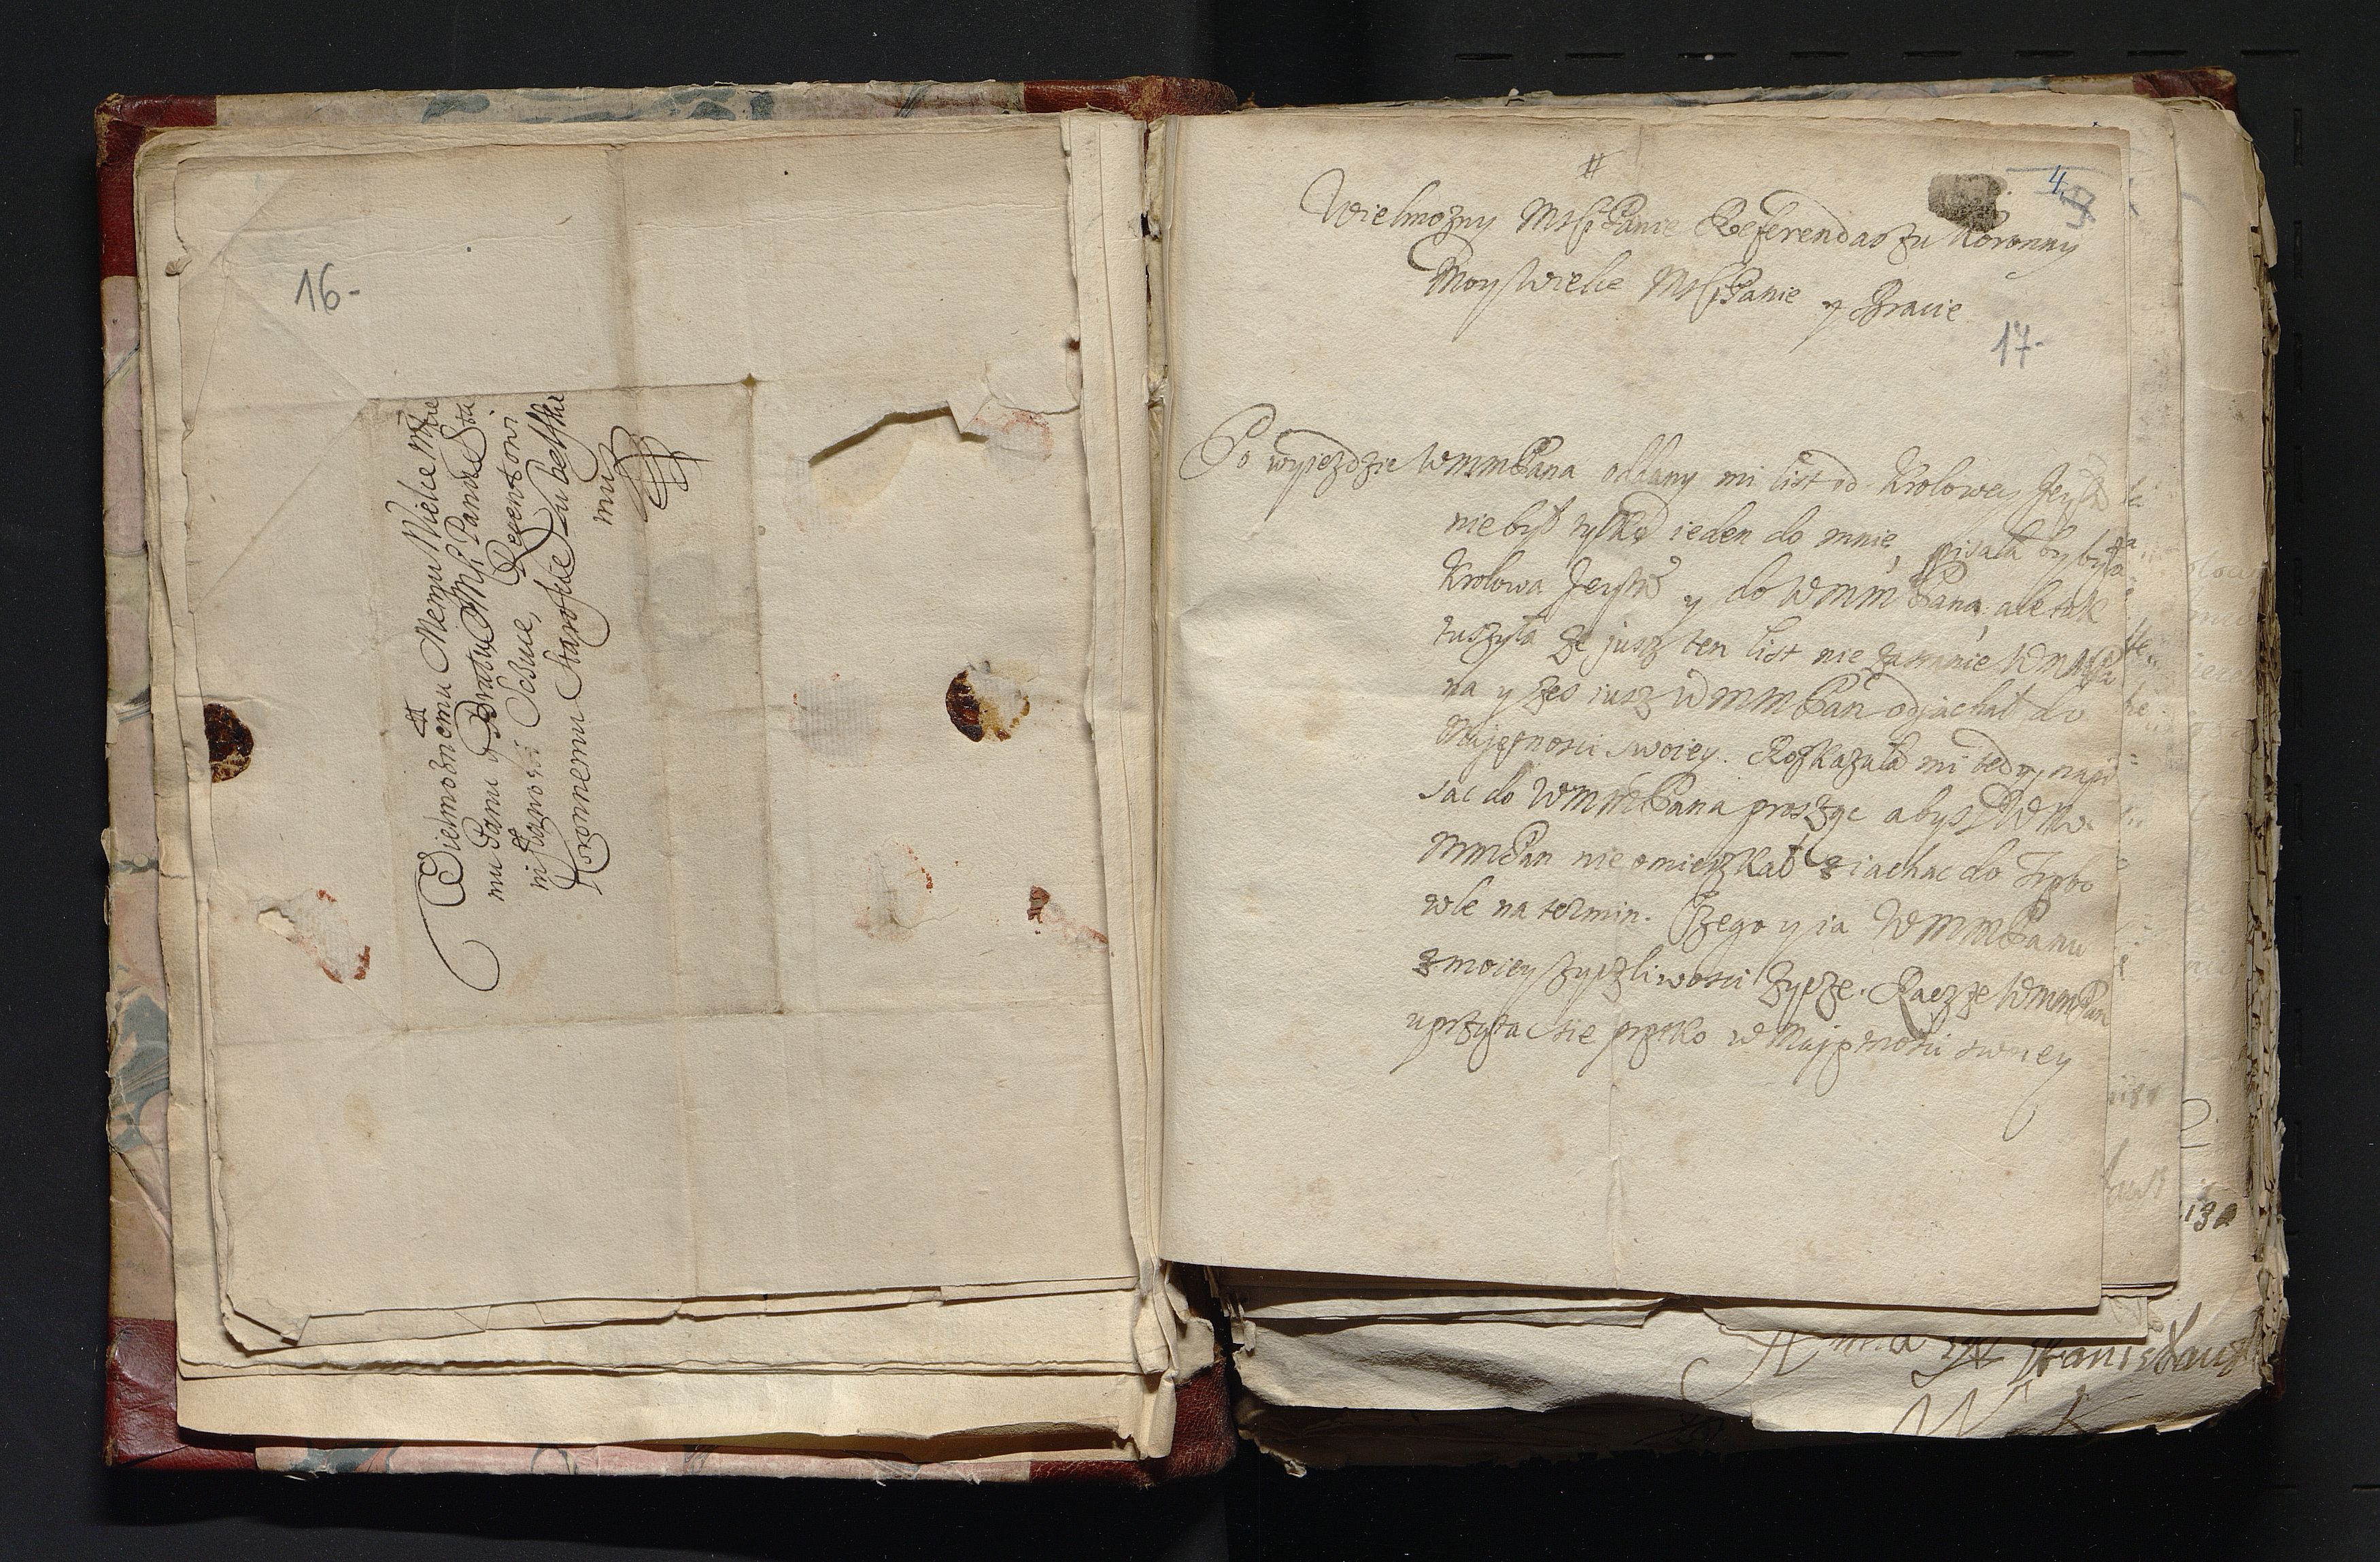 16-
#
Wielmoznemu Memu Wielce Mẜciwe
mu Panu y Bratu JMẜ Panu Sta
nisławowi Regentowi
Koronnemu Staroscie Lubelskie
mu
4
#
Wielmozny Mẜci Panie Referendarzu Koronny
Moy Wielce Mẜci Panie y Bracie
17-
Po wyiezdzie WMMPana oddany mi list od Krolowey Jey
nie był tylko ieden do mnie, pisała by była
Krolowa Jey y do WMM Pana, ale tak
tuszyła ze jusz ten list nie zastanie WMMPa
na y zes iusz WMM Pan odjachał do
Majętnosci swoiey. Roskazała mi tedy, napi
sac do WMMPana prosząc abys W M
MMPan nie omieszkał ziachac do
wle na termin. Czego y ia WMMPanu
z moiey zyczliwosci zycze. Racz ze WMMPan
sie prętko w Majętnosci swoiey
Stanisław